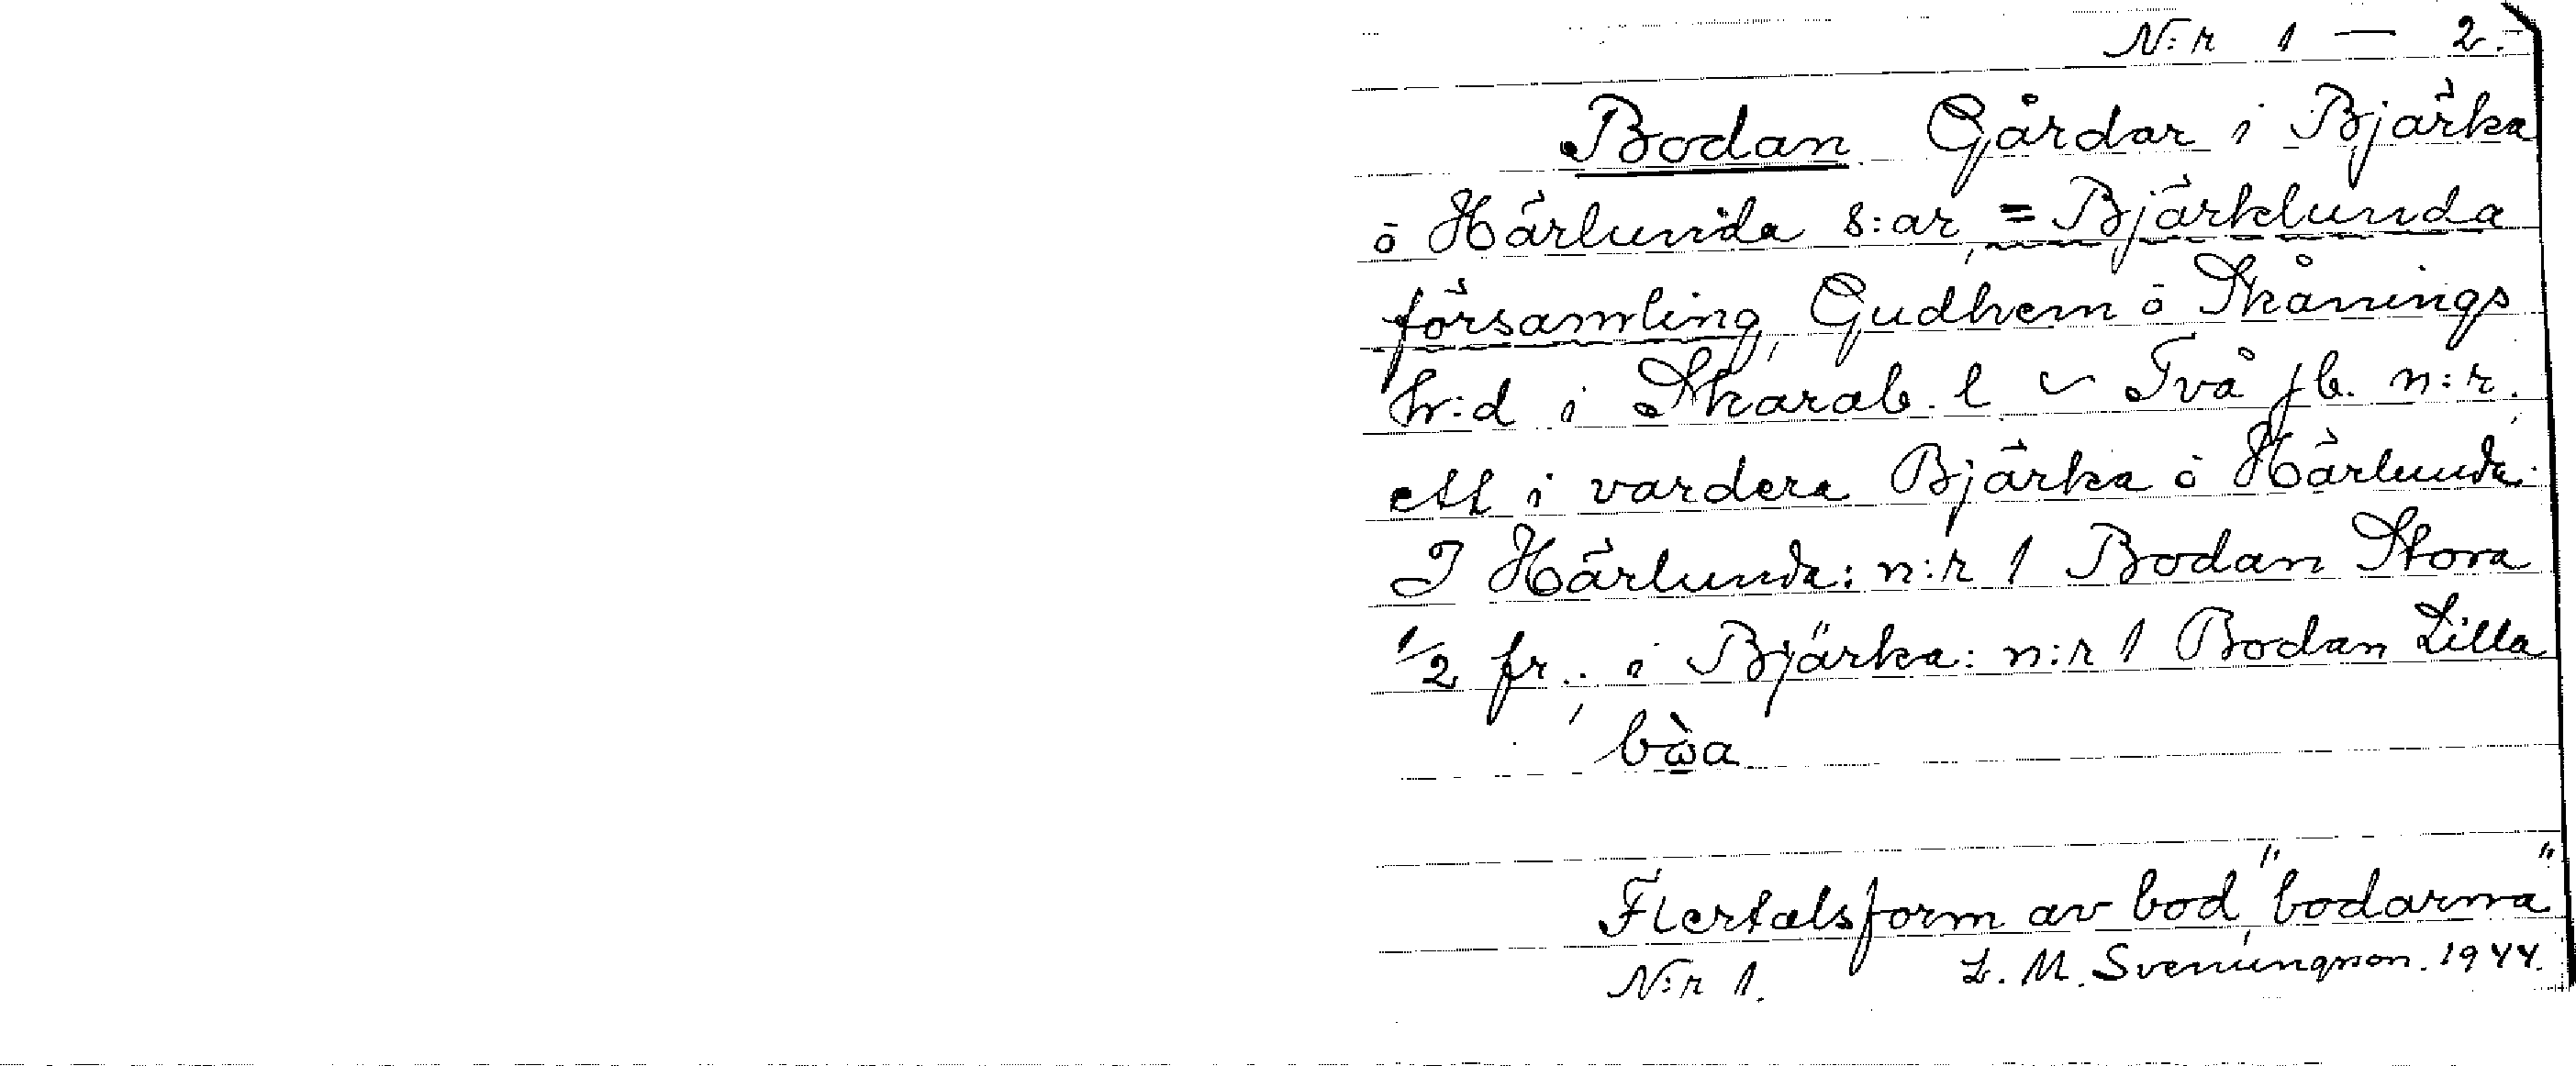 N:r 1 — 2.
Bodan Gårdar i Bjärka
o Härlunda s:ar, = Bjärklunda
församling, Gudhem o Skånings
h:d i Skarab. l Två jb. n:r,
ett i vardera Bjärka o Härlunda.
I Härlunda: n:r 1 Bodan Stora
1/2 fr.; i Bjärka: n:r 1 Bodan Lilla
bὼa
Flertalsform av bod, "bodarna"
N:r 1. L. M. Svenungsson. 1944.